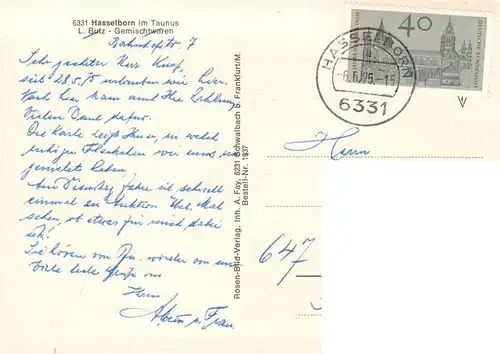 6331 Hasselborn im Taunus
L. Butz - Gemischtwaren
Bahnhofstr. 7
Sehr geehrter Herr Knopf,
seit 28.5.75 urlauben wir hier.
Noch hier kam auch Ihre Zahlung
Vielen Dank dafür.
Die Karte zeigt Ihnen, in welch
ruhigen Fleckchen wir uns
gemietet haben.
Am Dienstag fahre ich schnell
einmal zur Auktion
sehen, ob etwas für mich dabei
ist!
Sie hören von
Viele liebe Grüße von
Ihrem
u. Frau
Rosen-Bild-Verlag, Inh. A. Fay, 6231 Schwalbach b. Frankfurt/M.
Bestell-Nr. 1937
HASSELBORN
-6.6.75.-15
6331
40
DEUTSCHE BUNDESPOST
Herrn
647